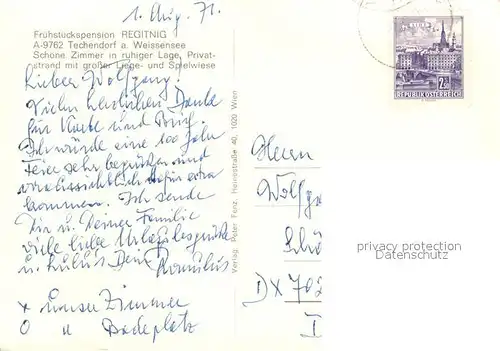 1. Aug. 71.
Frühstückspension REGITNIG
A-9762 Techendorf a. Weissensee
Schöne Zimmer in ruhiger Lage, Privat-
strand mit großer Liege- und Spielwiese
Lieber Wolfgang!
Vielen herzlichen Dank
für Karte und Brief.
Ich würde eine 100 Jahr
Feier sehr begrüßen und
voraussichtlich dafür extra
kommen. Ich sende
Dir u. Deiner Familie
viele liebe Urlaubsgrüße
u. Dein Romulus
x unser Zimmer
O " Badeplatz
Verlag: Peter Fenz, Heinestraße 40, 1020 Wien
Herrn
Wolfga
Schö
D X 702
REPUBLIK ÖSTERREICH
privacy protection
Datenschutz